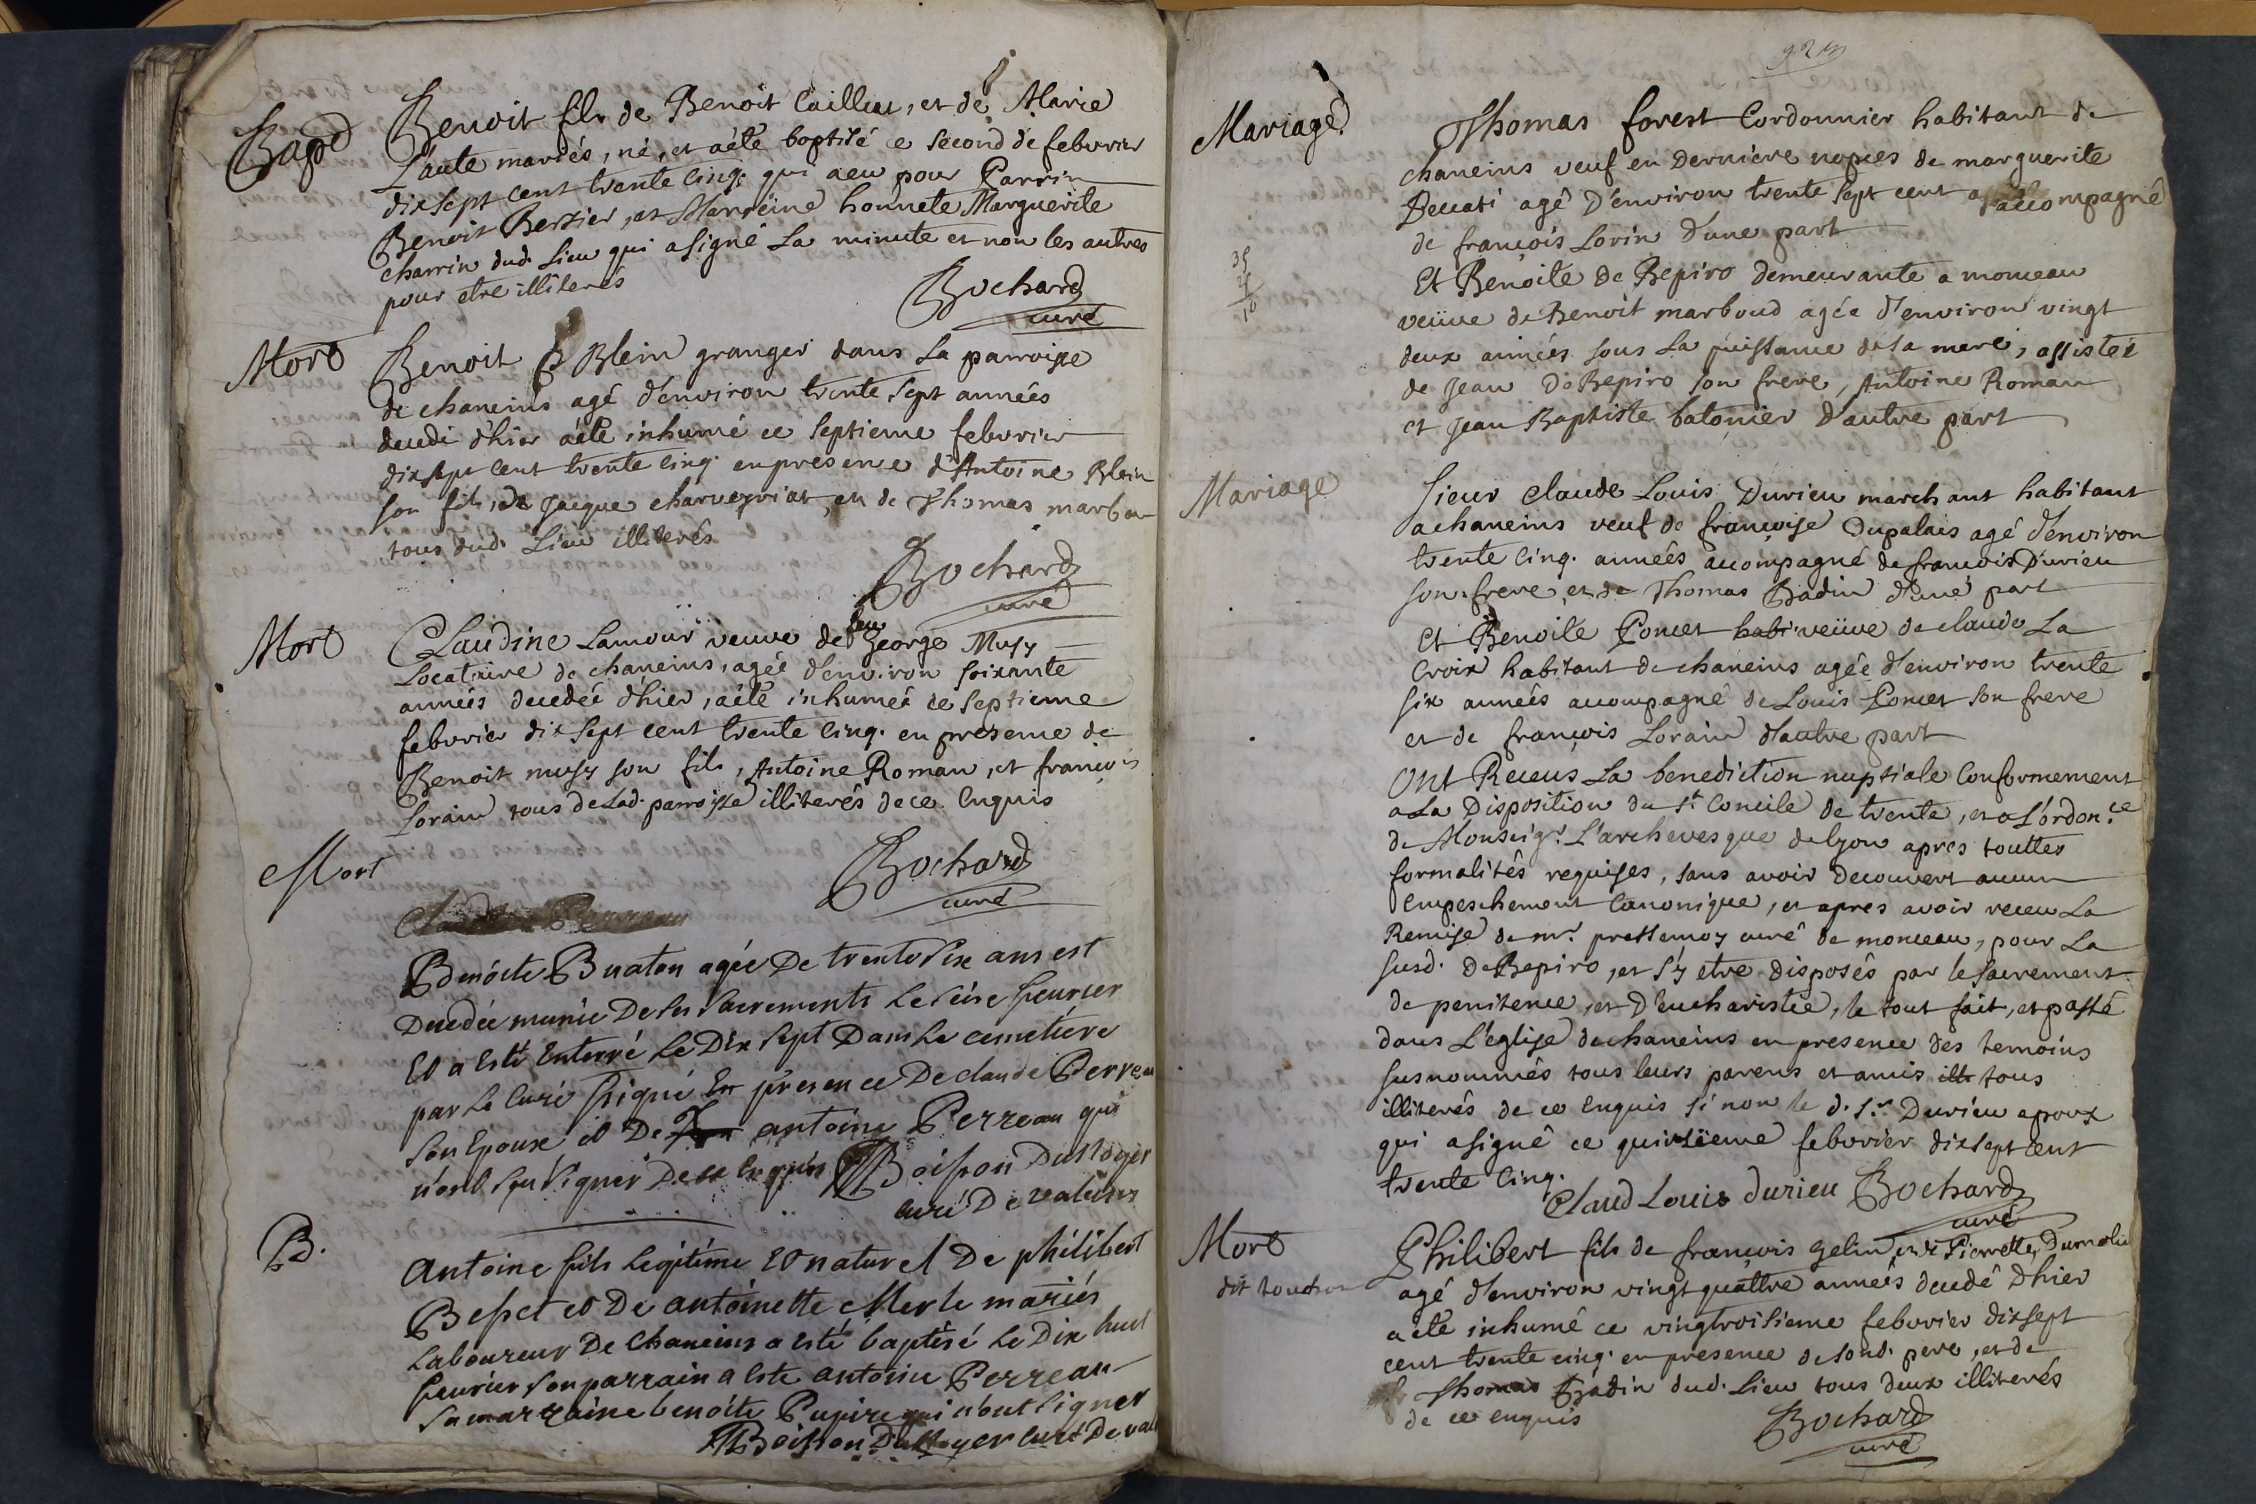 Bap
Benoit fils de Benoit Caillat, et de Marie
Laute mariés, né, et aété baptisé ce second de febvrier
dixsept cent trente cinq. qui aeu pour Parrin
Benoit Bessier, et Marreine honnete Marguerite
charrin dud. Lieu qui asigné La minute et non les autres
pour etre illiterés
Bochard
curé
Mort
Benoit Blein granger dans La parroisse
de chaneins agé d'environ trente sept années
decedé d'hier aété inhumé ce septieme febvrier
dixsept cent trente cinq. enpresence d'Antoine Blein
son fils, de Jacque charveyriat, et de Thomas marbou
tous dud. Lieu illiterés
Bochard
curé
Mort
Claudine Lamour veuve de feu George Musy
Locataire de chaneins, agée d'environ soixante
années decedée d'hier, aété inhumeé ce septieme
febvrier dix sept cent trente cinq. en presence de
Benoit musy son fils, Antoine Roman, et francois
Lorain tous de Lad. parroisse illiterés de ce Enquis
Bochard
curé
Mort
Benoite Buaton agée De trente six ans est
Decedée munie De ses sacrements Le seise feuvrier
Et a Esté Enterré Le Dix sept Dans Le cemetiere
par Le Curé signé En presence De claude Perreau
son Epoux et De antoine Perreau qui
n'ont sçu signer De ce Enquis Boisson Dunoyer
curé De valeins
B.
Antoine fils Legitime Et naturel De philibert
Besset et De antoinette Merle mariés
Laboureur De Chaneins a Esté baptisé Le Dix huit
feuvrier son parrain a Este antoine Perreau
sa marraine benoite Pupire qui n'ont signer
Boisson Dunoyer curé De val
923
Mariage
Thomas forest Cordonnier habitant de
chaneins veuf en Derniere nopces de marguerite
Beccati agé D'environ trente sept cent accompagné
de françois Lorin d'une part
35
10
Et Benoite de Bepiro demeurante a monceau
veüve de Benoit marboud agée d'environ vingt
deux années sous La puissance de sa mere, assistée
de Jean De Bepiro son frere, Antoine Roman
et Jean Baptiste batonier d'autre part
Mariage
Sieur claude Louis Durieu marchant habitant
achaneins veuf de françoise Dupalais agé d'environ
trente cinq. années accompagné de francois Durieu
son frere, et de Thomas Badin d'une part
Et Benoite Poncet habi veüve de claude La
Croix habitant de chaneins agée d'environ trente
six années accompagné de Louis Poncet son frere
et de françois Lorain d'autre part
Ont Receus La benediction nuptiale Conformement
a La Disposition du st. Concile de trente, et a L'ordon.ce
de Monseigr. L'archevesque de Lyon apres touttes
formalités requises, sans avoir decouvert aucun
Empeschement Canonique, et apres avoir receu La
Remise de mr. pressemoy curé de monceau, pour La
susd. De Bepiro, et s'y etre disposés par le sacrement
de penitence, et D'eucharistie, le tout fait, et passé
dans L'église de chaneins en presence des temoins
susnommés tous leurs parens et amis ill tous
illiterés de ce Enquis si non le d. sr. Durieu epoux
qui asigné ce quinsieme febvrier dixsept cent
trente cinq.
Claud Louis durieu Bochard
curé
Mort
dit touchon
Philibert fils de francois gelin, et de Pierrette Dumolin
agé d'environ vingt quattre années decedé d'hier
a été inhumé ce vingtroisieme febvrier dixsept
cent trente cinq. en presence de sond. pere, et de
Thomas Badin dud. Lieu tous deux illiterés
de ce enquis
Bochard
curé